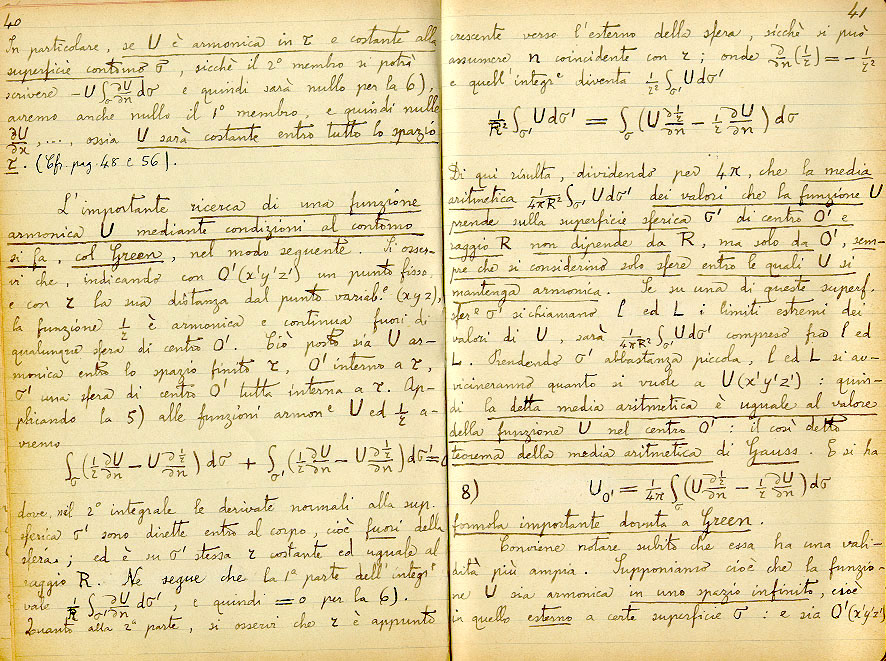 40
In particolare, se U è armonica in τ e costante alla
superficie contorno σ, sicchè il 2° membro si potrà
scrivere -U∫σ ∂U/∂n dσ e quindi sarà nullo per la 6),
avremo anche nullo il 1° membro, e quindi nulle
∂U/∂x, ..., ossia U sarà costante entro tutto lo spazio
τ. (Cfr. pag. 48 e 56).
L'importante ricerca di una funzione
armonica U mediante condizioni al contorno
si fa, col Green, nel modo seguente. Si osser-
vi che, indicando con O'(x'y'z') un punto fisso,
e con r la sua distanza dal punto variab.e (xyz),
la funzione 1/r è armonica e continua fuori di
qualunque sfera di centro O'. Ciò posto sia U ar-
monica entro lo spazio finito τ, O' interno a τ,
σ' una sfera di centro O' tutta interna a τ. Ap-
plicando la 5) alle funzioni armon.e U ed 1/r a-
vremo
∫σ (1/r ∂U/∂n - U ∂1/r/∂n) dσ + ∫σ' (1/r ∂U/∂n - U ∂1/r/∂n) dσ' = 0
dove, nel 2° integrale le derivate normali alla sup.
sferica σ' sono dirette entro al corpo, cioè fuori della
sfera; ed è su σ' stessa r costante ed uguale al
raggio R. Ne segue che la 1ª parte dell'integr.e
vale 1/R ∫σ' ∂U/∂n dσ', e quindi = 0 per la 6).
Quanto alla 2ª parte, si osservi che r è appunto
41
crescente verso l'esterno della sfera, sicchè si può
assumere n coincidente con r; onde ∂/∂n (1/r) = - 1/r²
e quell'integr.e diventa 1/r² ∫σ' U dσ'
1/R² ∫σ' U dσ' = ∫σ (U ∂1/r/∂n - 1/r ∂U/∂n) dσ
Di qui risulta, dividendo per 4π, che la media
aritmetica 1/4πR² ∫σ' U dσ' dei valori che la funzione U
prende sulla superficie sferica σ' di centro O' e
raggio R non dipende da R, ma solo da O', sem-
pre che si considerino solo sfere entro le quali U si
mantenga armonica. Se su una di queste superf.
sfer.e σ' si chiamano l ed L i limiti estremi dei
valori di U, sarà 1/4πR² ∫σ' U dσ' compreso fra l ed
L. Prendendo σ' abbastanza piccola, l ed L si av-
vicineranno quanto si vuole a U(x'y'z') : quin-
di la detta media aritmetica è uguale al valore
della funzione U nel centro O' : il così detto
teorema della media aritmetica di Gauss. E si ha
8) U_O' = 1/4π ∫σ (U ∂1/r/∂n - 1/r ∂U/∂n) dσ
formola importante dovuta a Green.
Conviene notare subito che essa ha una vali-
dità più ampia. Supponiamo cioè che la funzio-
ne U sia armonica in uno spazio infinito, cioè
in quello esterno a certe superficie σ : e sia O'(x'y'z')